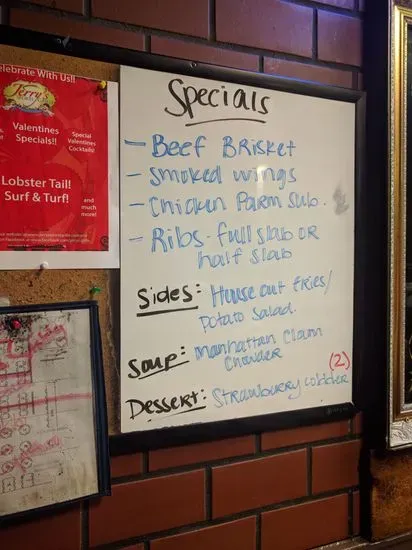 Celebrate With Us!!
Jerry's
Valentines
Specials!!
Special
Valentines
Cocktails!
Lobster Tail!
Surf & Turf!
and
much
more!
Specials
- Beef Brisket
- Smoked wings
- Chicken Parm Sub.
- Ribs - full slab or
half slab
Sides: House cut fries/
potato salad.
Soup: Manhattan Clam
Chowder
(2)
Dessert: Strawburry cobbler